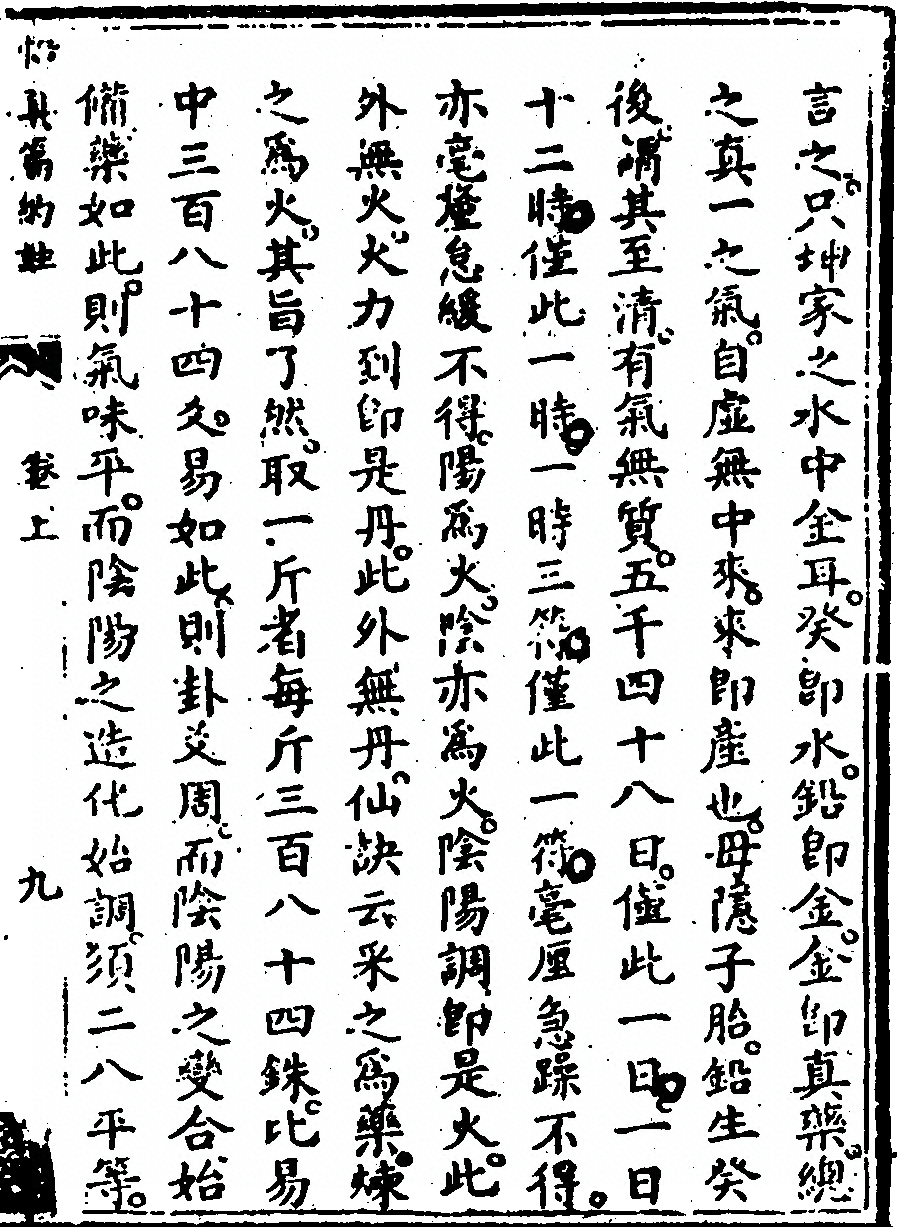 言之只坤家之水中金耳癸卽水鉛卽金金卽真藥總
之真一之氣自虛無中來來卽產也母隱子胎鉛生癸
後謂其至清有氣無質五千四十八日僅此一日一日
十二時僅此一時一時三符僅此一符毫厘急躁不得
亦毫釐怠緩不得陽爲火陰亦爲火陰陽調卽是火此
外無火火力到卽是丹此外無丹仙訣云采之爲藥煉
之爲火其旨了然取一斤者每斤三百八十四銖比易
中三百八十四爻易如此則卦爻周而陰陽之變合始
備藥如此則氣味平而陰陽之造化始調須二八平等
悟真篇約註
卷上
九